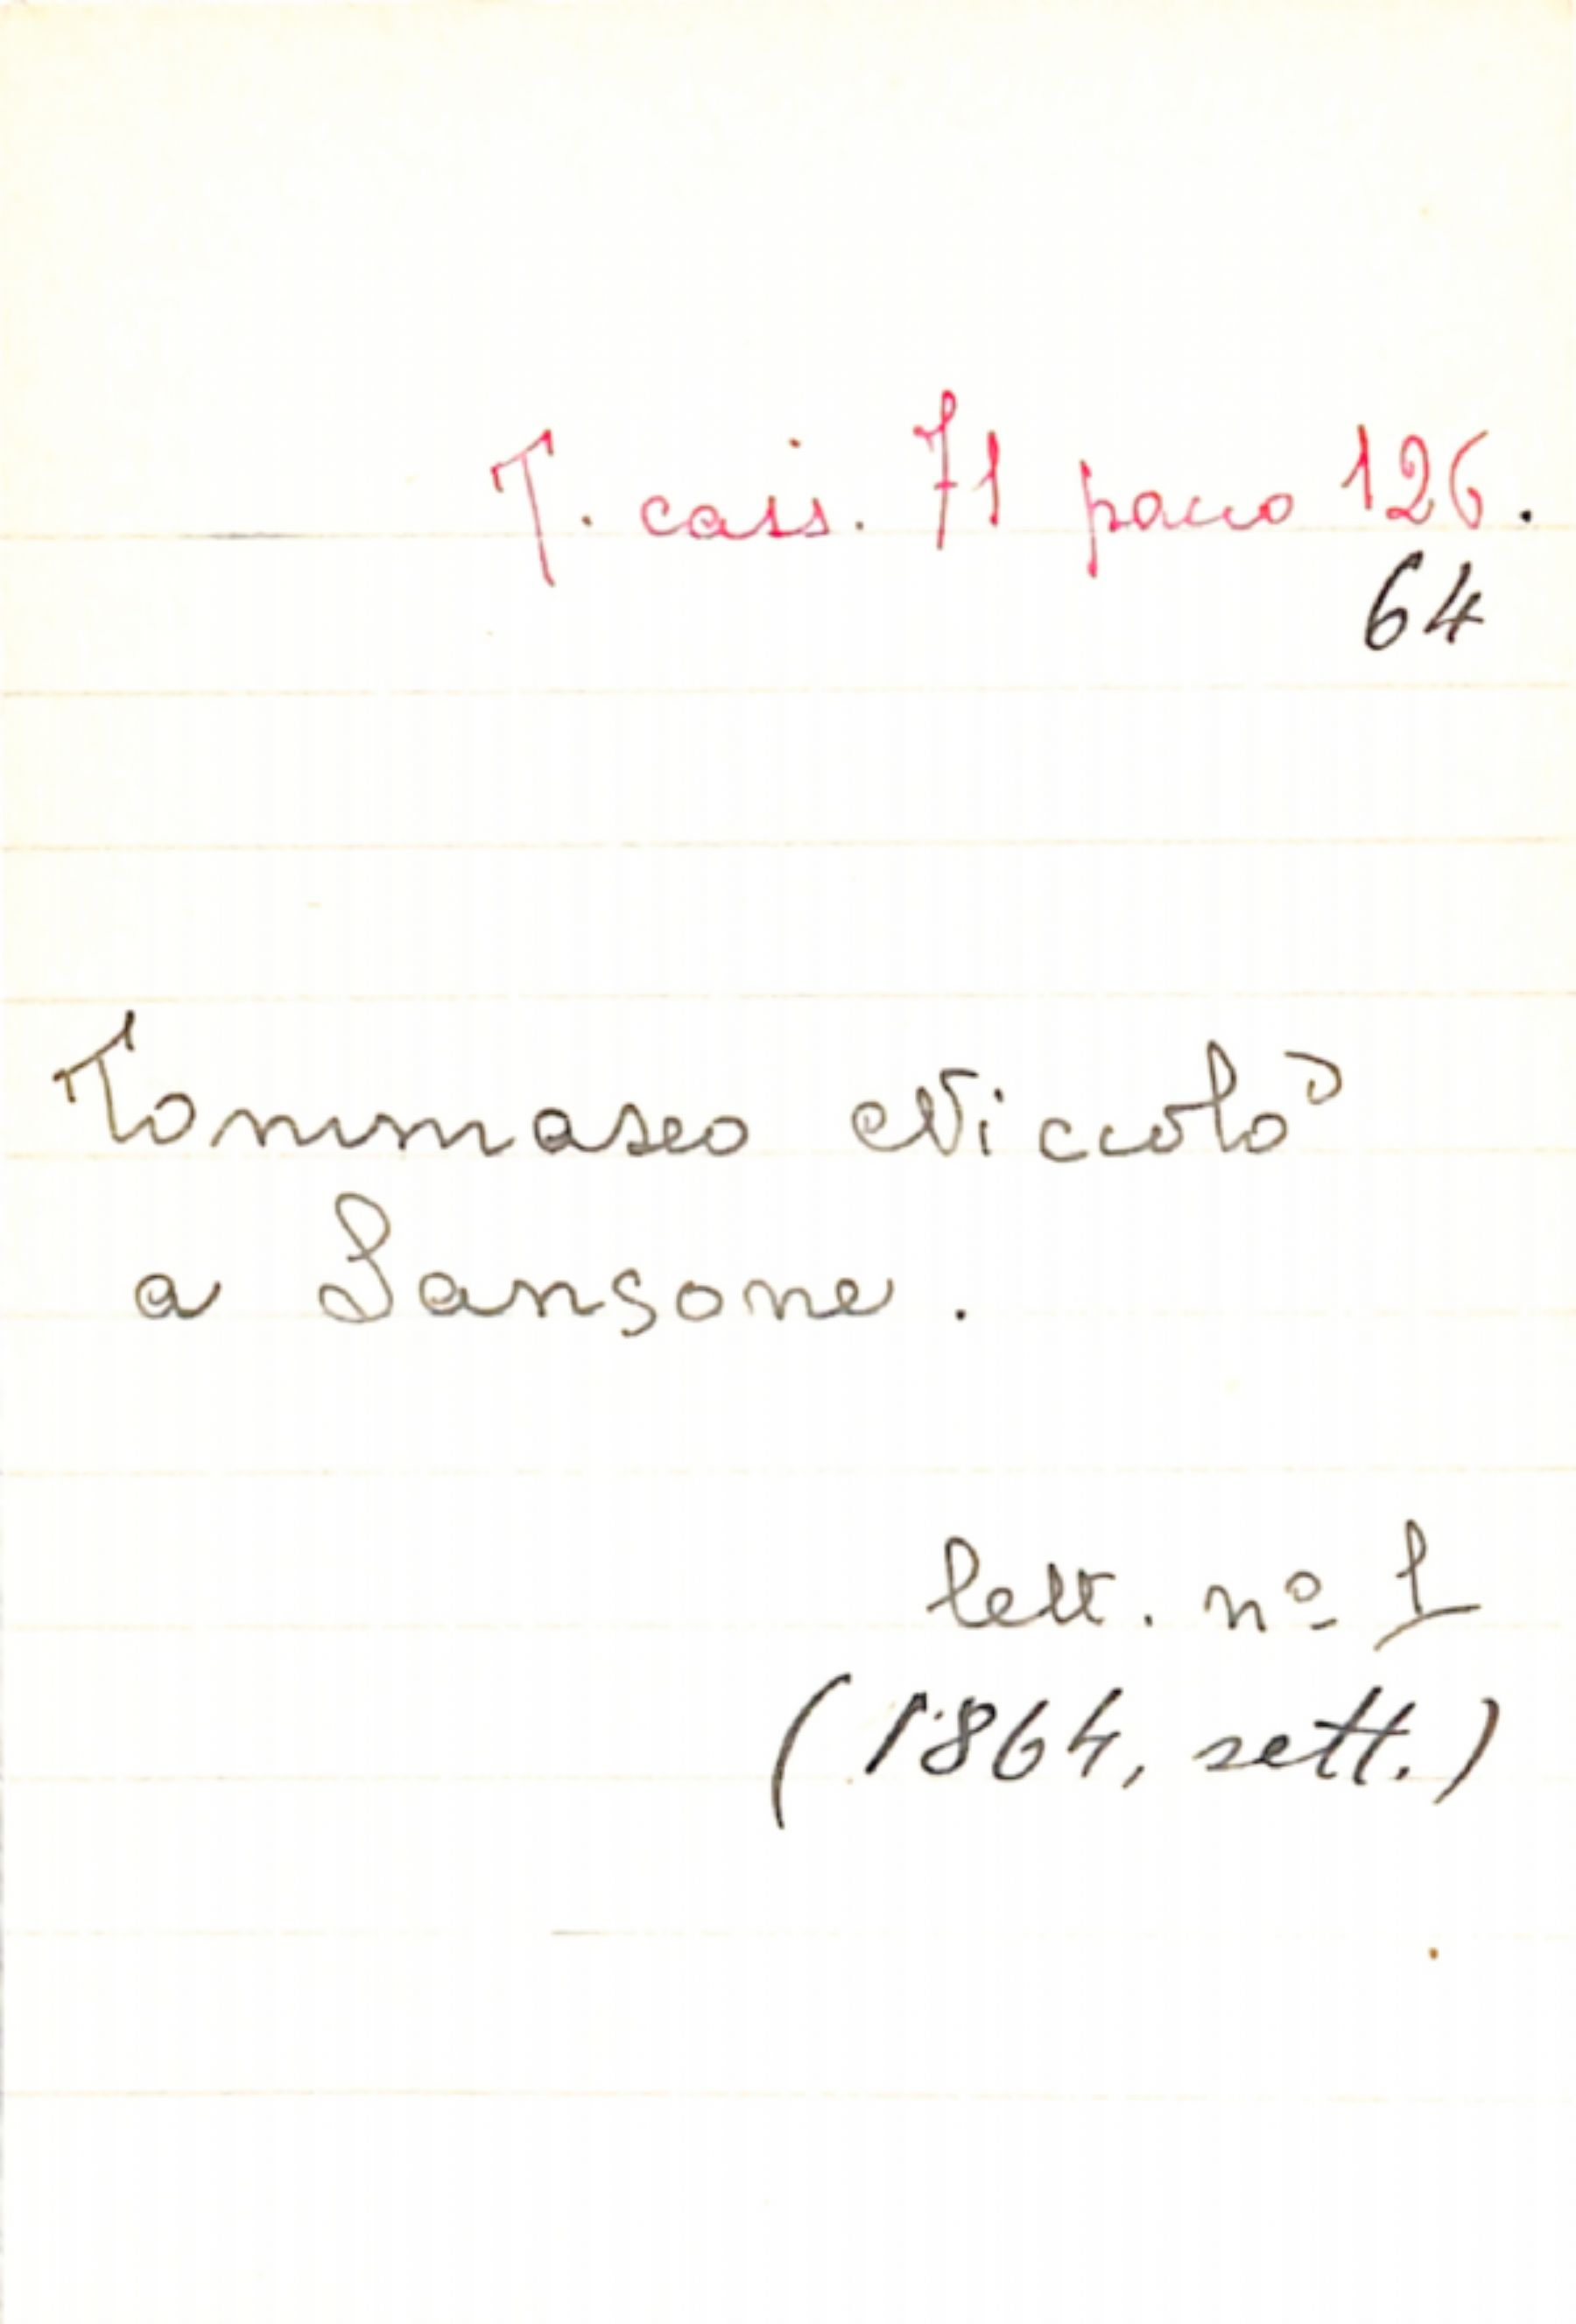 T. cass. 71 pacco 126.
64
Tommaseo Niccolò
a Sansone.
lett. nº 1
(1864, sett.)